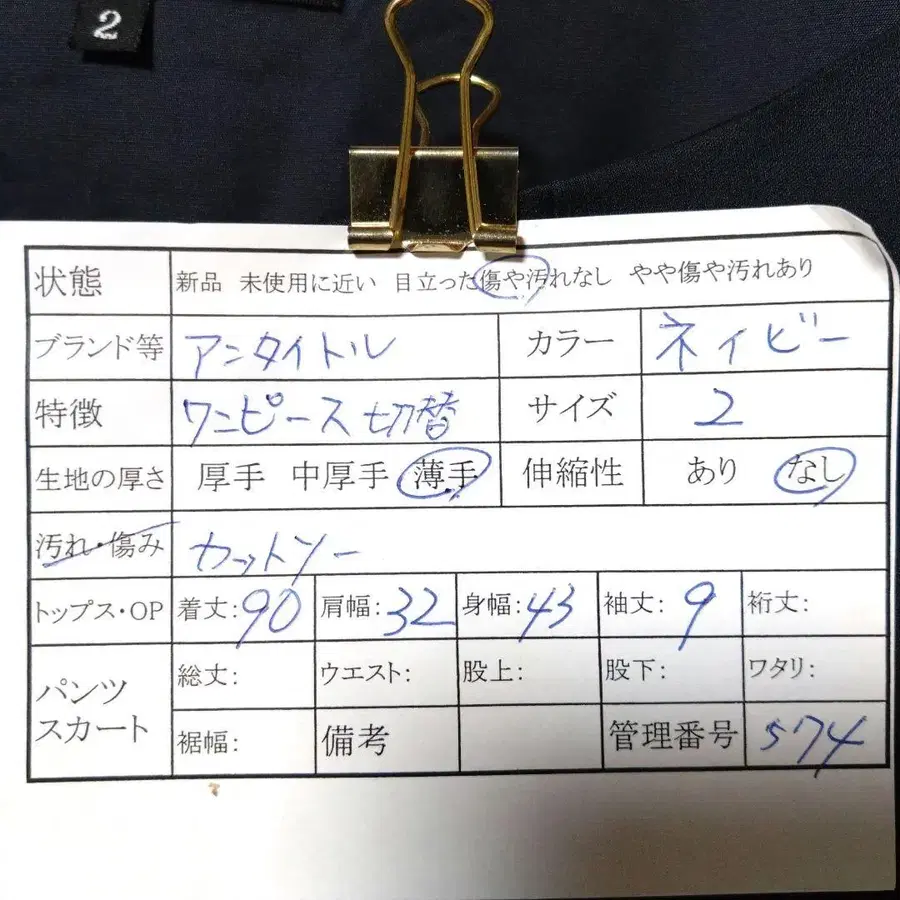 2
状態 新品 未使用に近い 目立った傷や汚れなし やや傷や汚れあり
ブランド等 アンタイトル カラー ネイビー
特徴 ワンピース 切替 サイズ 2
生地の厚さ 厚手 中厚手 薄手 伸縮性 あり なし
汚れ・傷み カットソー
トップス・OP 着丈:90 肩幅:32 身幅:43 袖丈:9 裄丈:
パンツ スカート 総丈: ウエスト: 股上: 股下: ワタリ:
裾幅: 備考 管理番号 574